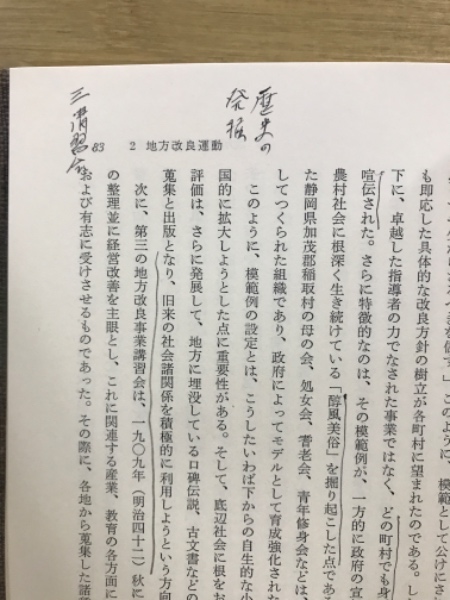 83 2 地方改良運動
歴史の
発掘
三 講習会
を信ず。」このように、模範として公けにさ
も即応した具体的な改良方針の樹立が各町村に望まれたのである。し
下に、卓越した指導者の力でなされた事業ではなく、どの町村でも身
宣伝された。さらに特徴的なのは、その模範例が、一方的に政府の宣
農村社会に根深く生き続けている「醇風美俗」を掘り起こした点であ
た静岡県加茂郡稲取村の母の会、処女会、耆老会、青年修身会などは、
してつくられた組織であり、政府によってモデルとして育成強化された
このように、模範例の設定とは、こうしたいわば下からの自生的な小
国的に拡大しようとした点に重要性がある。そして、底辺社会に根をお
評価は、さらに発展して、地方に埋没している口碑伝説、古文書などの
蒐集と出版となり、旧来の社会諸関係を積極的に利用しようという方向
次に、第三の地方改良事業講習会は、一九〇九年(明治四十二)秋に
の整理並に経営改善を主眼とし、これに関連する産業、教育の各方面に
および有志に受けさせるものであった。その際に、各地から蒐集した諸